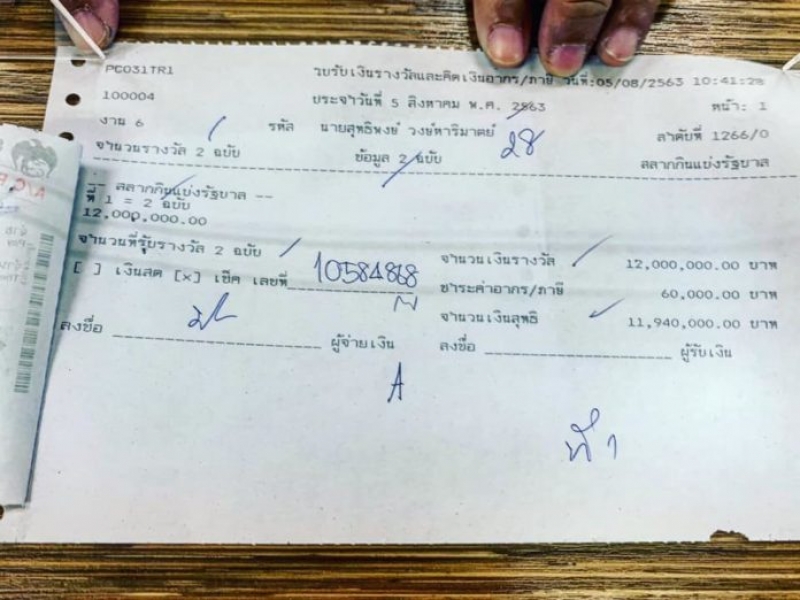 PC031TR1 ใบรับเงินรางวัลและคิดเงินอากร/ภาษี วันที่:05/08/2563 10:41:28
100004 ประจำวันที่ 5 สิงหาคม พ.ศ. 2563 หน้า: 1
งาน 6 รหัส นายสุทธิพงษ์ วงษ์หาริมาตย์ 28 ลำดับที่ 1266/0
จำนวนรางวัล 2 ฉบับ ข้อมูล 2 ฉบับ สลากกินแบ่งรัฐบาล
-- สลากกินแบ่งรัฐบาล --
ที่ 1 = 2 ฉบับ
12,000,000.00
จำนวนที่รับรางวัล 2 ฉบับ จำนวนเงินรางวัล 12,000,000.00 บาท
[ ] เงินสด [x] เช็ค เลขที่ 10584868 ชำระค่าอากร/ภาษี 60,000.00 บาท
จำนวนเงินสุทธิ 11,940,000.00 บาท
ลงชื่อ ผู้จ่ายเงิน ลงชื่อ ผู้รับเงิน
A